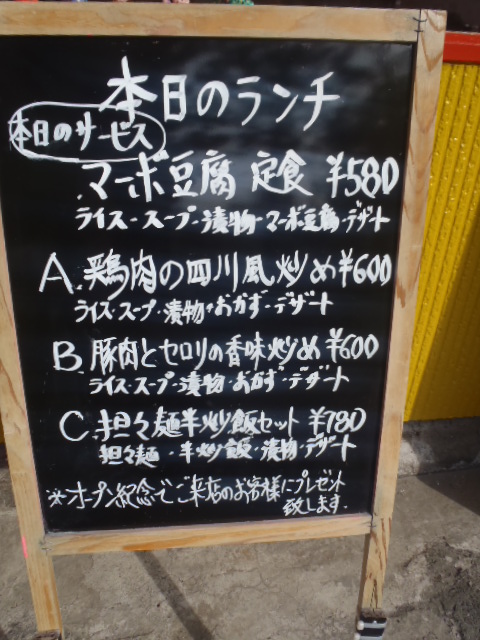 本日のランチ
本日のサービス
マーボ豆腐 定食 ¥580
ライス・スープ・漬物・マーボ豆腐・デザート
A.鶏肉の四川風炒め¥600
ライス・スープ・漬物・おかず・デザート
B.豚肉とセロリの香味炒め¥600
ライス・スープ・漬物・おかず・デザート
C.担々麺半炒飯セット ¥780
担々麺・半炒飯・漬物・デザート
※オープン記念でご来店のお客様にプレゼント
致します.